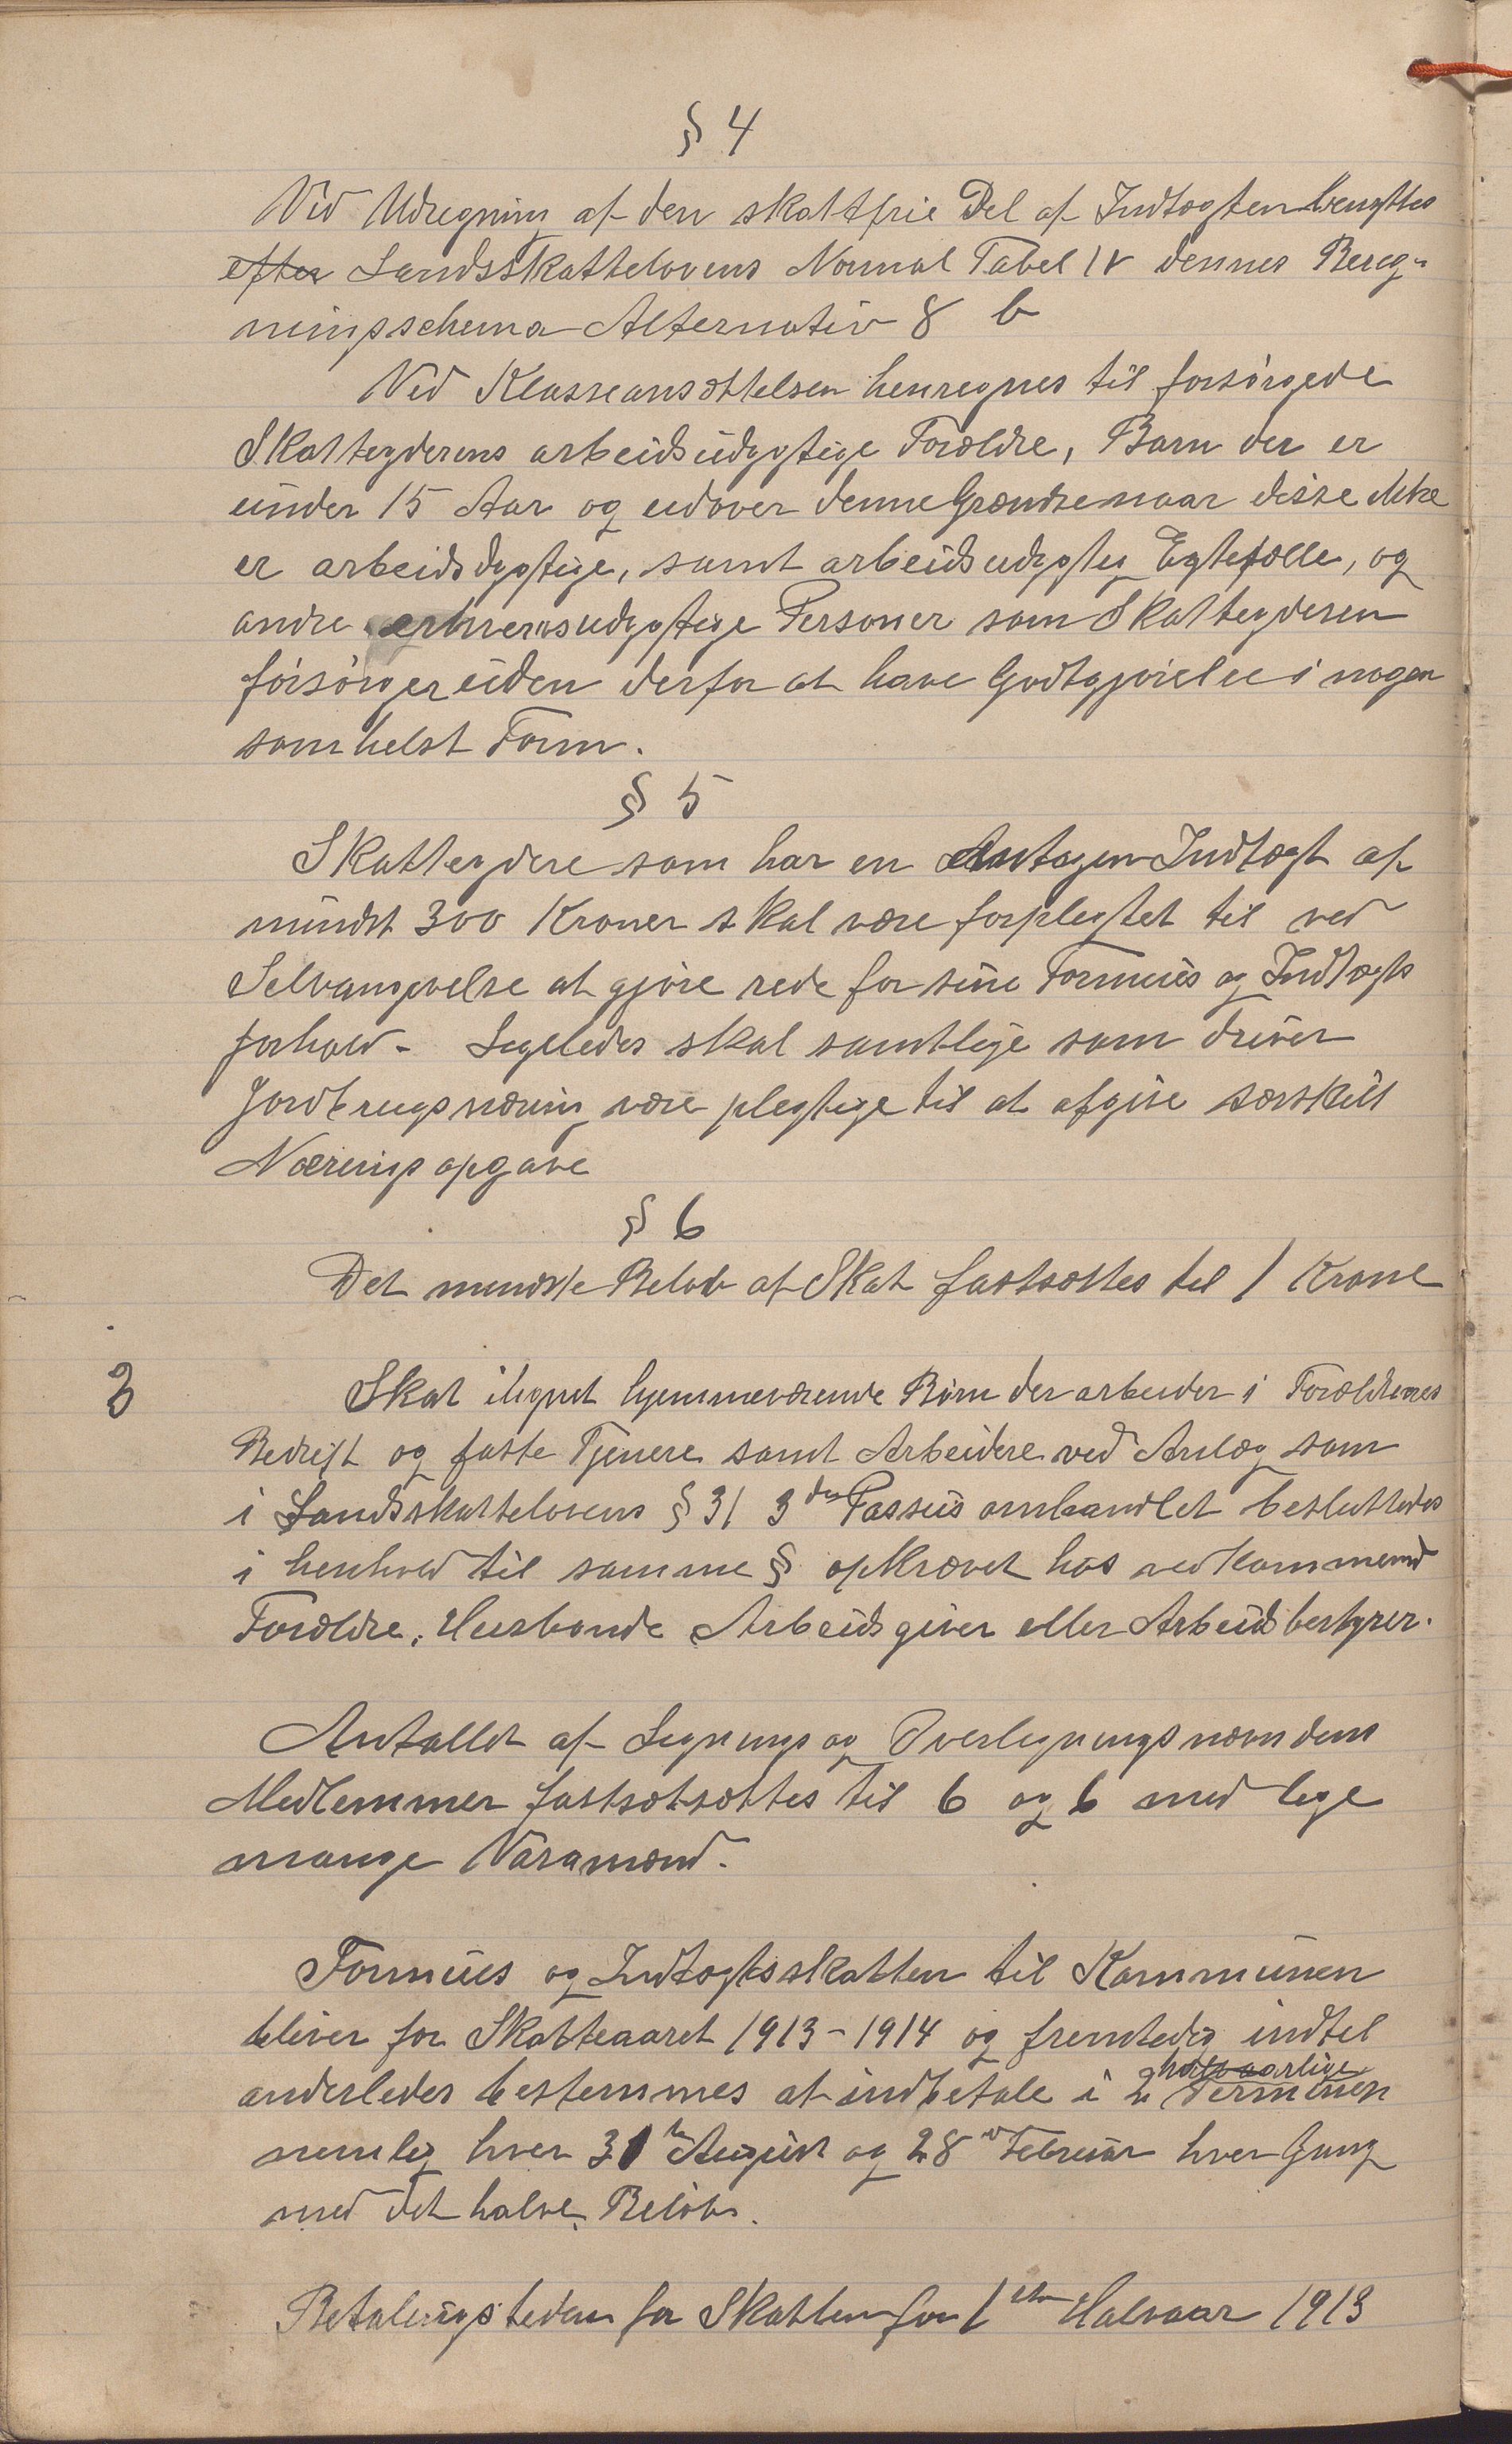 § 4
Ved Udregning af den skattfrie Del af Indtægten benyttes
efter Landsskattelovens Normal Tabel IV dennes Bereg-
ningsschema Alternativ 8 b
Ved Klasseansættelsen henregnes til forsørgede
Skatteyderens arbeidsudygtige Forældre, Barn der er
under 15 Aar og udover denne Grændse naar disse ikke
er arbeidsdygtige, samt arbeidsudygtig Egtefælle, og
andre erhvervsudygtige Personer som Skatteyderen
forsørger uden derfor at have Godtgjørelse i nogen
somhelst Form.
§ 5
Skatteydere som har en Antagen Indtægt af
mindst 300 Kroner skal være forplegtet til ved
Selvangivelse at gjøre rede for sine Formues og Indtægts
forhold. Legeledes skal samtlige som driver
Jordbrugsnæring være plegtige til at afgive særskilt
Næringsopgave
§ 6
Det mindste Beløb af Skat fastsættes til 1 Krone
3 Skat ilignet hjemmeværende Børn der arbeider i Forældrenes
Bedrift og faste Tjenere samt Arbeidere ved Anlæg som
i Landsskattelovens § 31 3die Passus omhandlet besluttedes
i henhold til samme § opkrævet hos vedkommend
Forældre, Husbonde Arbeidsgiver eller Arbeidsbestyrer.
Antallet af Legnings og Overlegningsnævndens
Medlemmer fastsætsættes til 6 og 6 med lige
mange Varamænd.
Formues og Indtægtsskatten til Kommunen
bliver for Skatteaaret 1913-1914 og fremtedig indtel
anderledes bestemmes at indbetale i 2 halvaarlige Terminer
nemlig hver 31te August og 28de Februar hver Gang
med det halve Beløb.
Betalingstiden for Skatten for 1ste Halvaar 1913